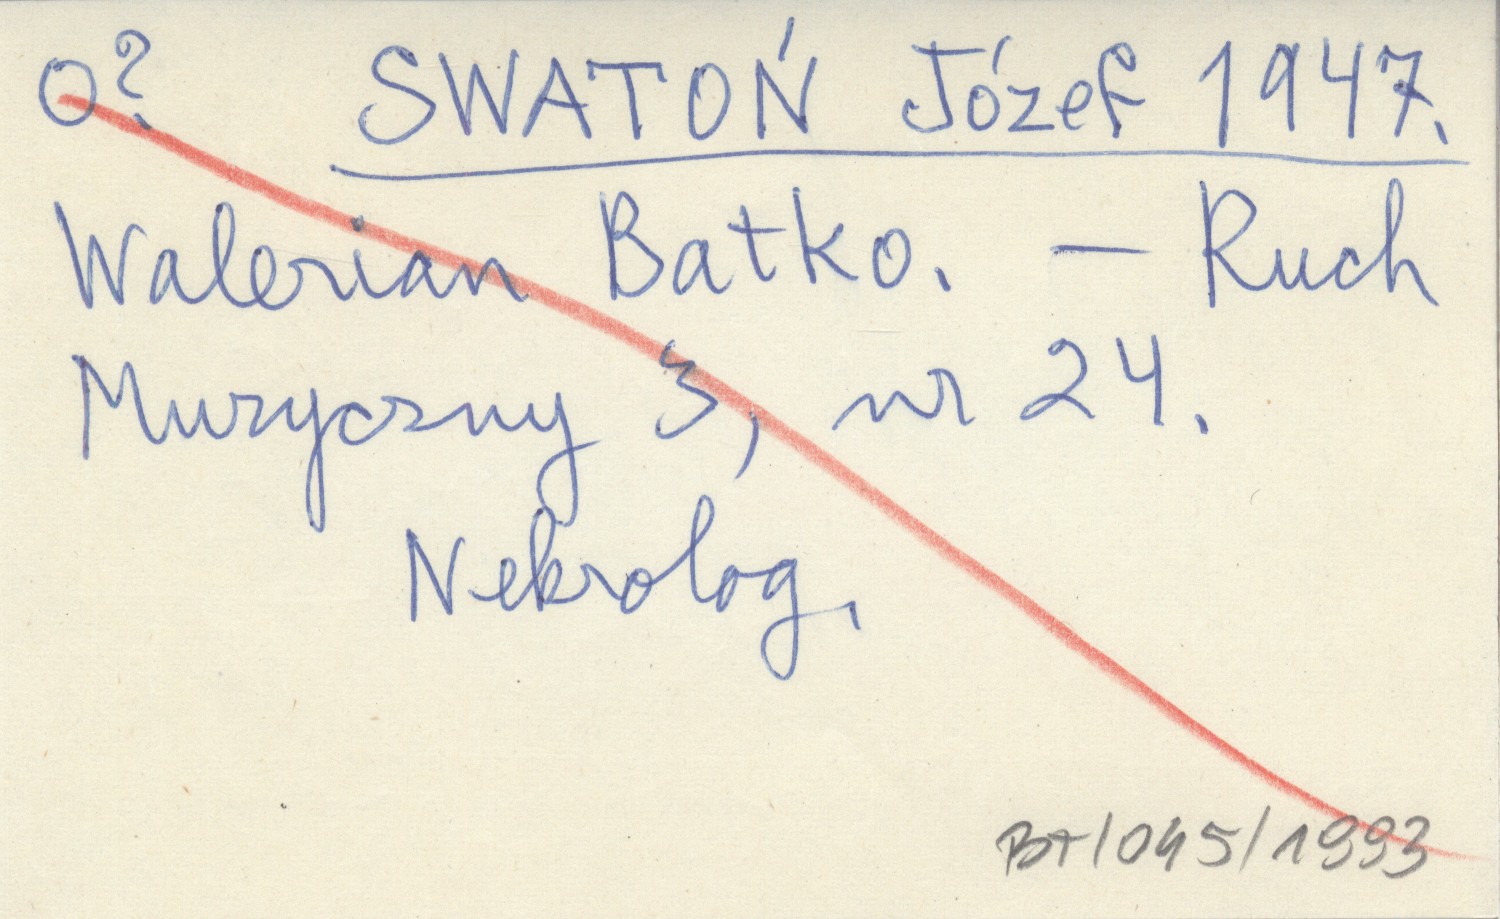 O? SWATOŃ Józef 1947.
Walerian Batko. — Ruch
Muzyczny 3, nr 24.
Nekrolog.
BT/045/1993